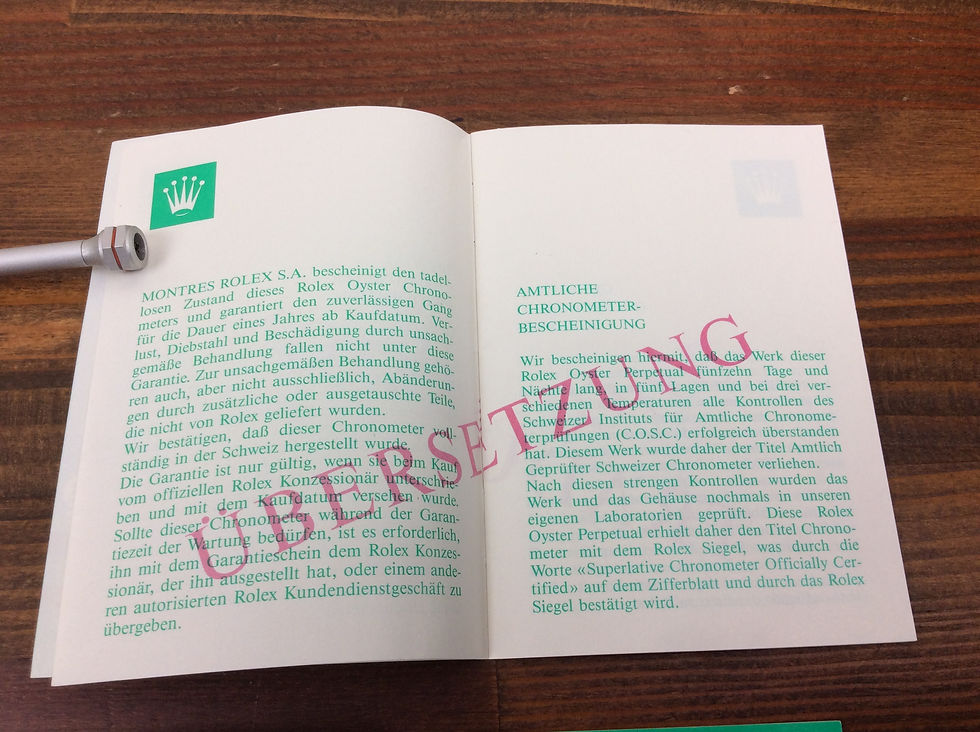 MONTRES ROLEX S.A. bescheinigt den tadel-
losen Zustand dieses Rolex Oyster Chrono-
meters und garantiert den zuverlässigen Gang
für die Dauer eines Jahres ab Kaufdatum. Ver-
lust, Diebstahl und Beschädigung durch unsach-
gemäße Behandlung fallen nicht unter diese
Garantie. Zur unsachgemäßen Behandlung gehö-
ren auch, aber nicht ausschließlich, Abänderun-
gen durch zusätzliche oder ausgetauschte Teile,
die nicht von Rolex geliefert wurden.
Wir bestätigen, daß dieser Chronometer voll-
ständig in der Schweiz hergestellt wurde.
Die Garantie ist nur gültig, wenn sie beim Kauf
vom offiziellen Rolex Konzessionär unterschrie-
ben und mit dem Kaufdatum versehen wurde.
Sollte dieser Chronometer während der Garan-
tiezeit der Wartung bedürfen, ist es erforderlich,
ihn mit dem Garantieschein dem Rolex Konzes-
sionär, der ihn ausgestellt hat, oder einem ande-
ren autorisierten Rolex Kundendienstgeschäft zu
übergeben.
AMTLICHE
CHRONOMETER-
BESCHEINIGUNG
Wir bescheinigen hiermit, daß das Werk dieser
Rolex Oyster Perpetual fünfzehn Tage und
Nächte lang, in fünf Lagen und bei drei ver-
schiedenen Temperaturen alle Kontrollen des
Schweizer Instituts für Amtliche Chronome-
terprüfungen (C.O.S.C.) erfolgreich überstanden
hat. Diesem Werk wurde daher der Titel Amtlich
Geprüfter Schweizer Chronometer verliehen.
Nach diesen strengen Kontrollen wurden das
Werk und das Gehäuse nochmals in unseren
eigenen Laboratorien geprüft. Diese Rolex
Oyster Perpetual erhielt daher den Titel Chrono-
meter mit dem Rolex Siegel, was durch die
Worte «Superlative Chronometer Officially Cer-
tified» auf dem Zifferblatt und durch das Rolex
Siegel bestätigt wird.
ÜBERSETZUNG